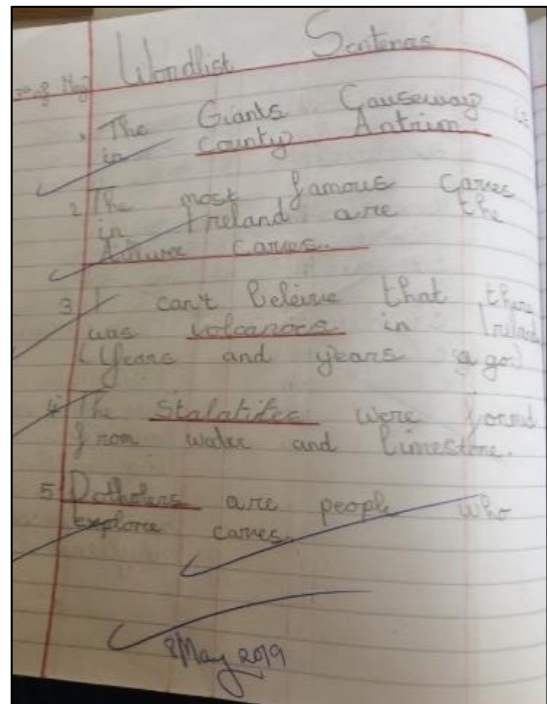 Wordlist Sentences
of May
1. The Giants Causeway is
in County Antrim.
2 The most famous Caves
in Ireland are the
Caves.
3 I can't beleive that there
was volcanoes in Ireland
(Years and years ago)
4 The Stalatites were formd
from water and limestone.
5 Potholers are people who
explore caves.
8 May 2019